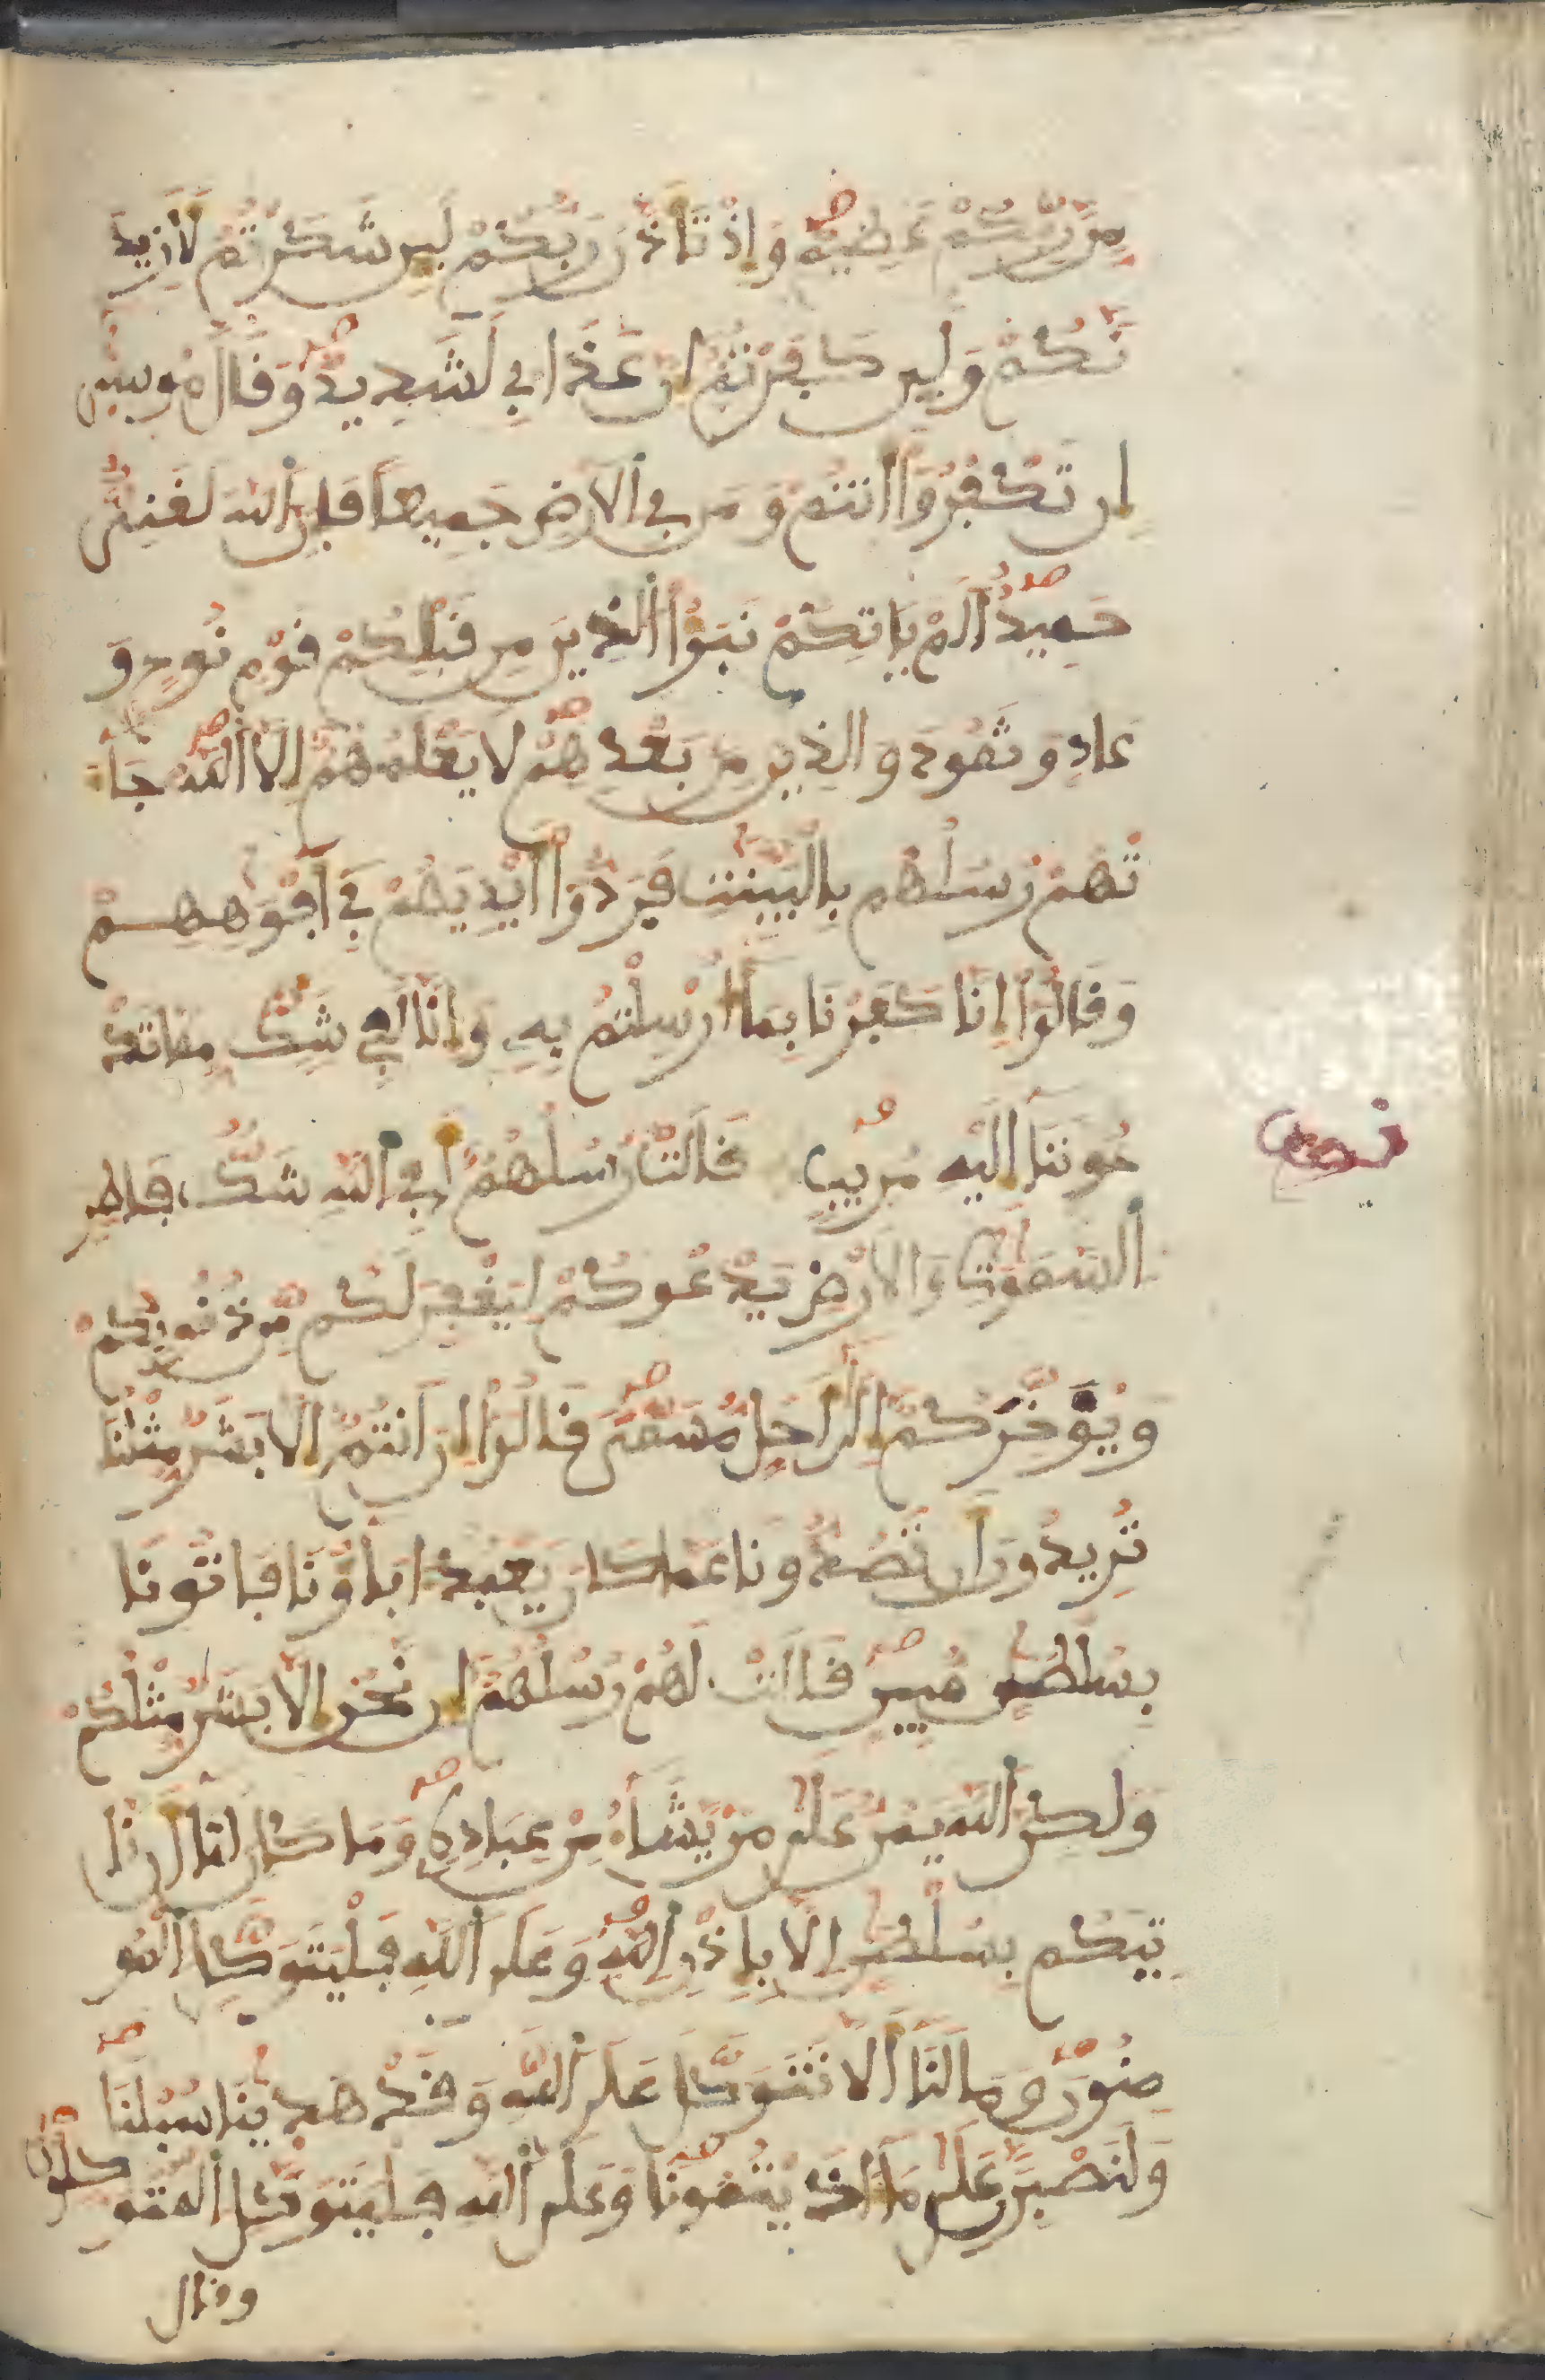 مِّن رَّبِّكُمْ عَظِيمٌ وَإِذْ تَأَذَّنَ رَبُّكُمْ لَئِن شَكَرْتُمْ لَأَزِيدَ
نَّكُمْ وَلَئِن كَفَرْتُمُ إِنَّ عَذَابِي لَشَدِيدٌ وَقَالَ مُوسَىٰ
إِن تَكْفُرُوا أَنتُمْ وَمَن فِي الْأَرْضِ جَمِيعًا فَإِنَّ اللَّهَ لَغَنِيٌّ
حَمِيدٌ أَلَمْ يَأْتِكُمْ نَبَؤُا الَّذِينَ مِن قَبْلِكُمْ قَوْمِ نُوحٍ وَ
عَادٍ وَثَمُودَ وَالَّذِينَ مِن بَعْدِهِمْ لَا يَعْلَمُهُمْ إِلَّا اللَّهُ جَآءَ
تْهُمْ رُسُلُهُم بِالْبَيِّنَٰتِ فَرَدُّوا أَيْدِيَهُمْ فِي أَفْوَٰهِهِمْ
وَقَالُوا إِنَّا كَفَرْنَا بِمَا أُرْسِلْتُم بِهِ وَإِنَّا لَفِي شَكٍّ مِّمَّا تَدْ
عُونَنَا إِلَيْهِ مُرِيبٍ قَالَتْ رُسُلُهُمْ أَفِي اللَّهِ شَكٌّ فَاطِرِ
السَّمَٰوَٰتِ وَالْأَرْضِ يَدْعُوكُمْ لِيَغْفِرَ لَكُم مِّن ذُنُوبِكُمْ
وَيُؤَخِّرَكُمْ إِلَىٰ أَجَلٍ مُّسَمًّى قَالُوا إِنْ أَنتُمْ إِلَّا بَشَرٌ مِّثْلُنَا
تُرِيدُونَ أَن تَصُدُّونَا عَمَّا كَانَ يَعْبُدُ ءَابَاؤُنَا فَاتُونَا
بِسُلْطَٰنٍ مُّبِينٍ قَالَتْ لَهُمْ رُسُلُهُمْ إِن نَّحْنُ إِلَّا بَشَرٌ مِّثْلُكُمْ
وَلَٰكِنَّ اللَّهَ يَمُنُّ عَلَىٰ مَن يَشَآءُ مِنْ عِبَادِهِ وَمَا كَانَ لَنَا أَن نَّا
تِيَكُم بِسُلْطَٰنٍ إِلَّا بِإِذْنِ اللَّهِ وَعَلَى اللَّهِ فَلْيَتَوَكَّلِ الْمُو
مِنُونَ وَمَا لَنَا أَلَّا نَتَوَكَّلَ عَلَى اللَّهِ وَقَدْ هَدَىٰنَا سُبُلَنَا
وَلَنَصْبِرَنَّ عَلَىٰ مَا ءَاذَيْتُمُونَا وَعَلَى اللَّهِ فَلْيَتَوَكَّلِ الْمُتَوَ
كِّلُونَ
وقال